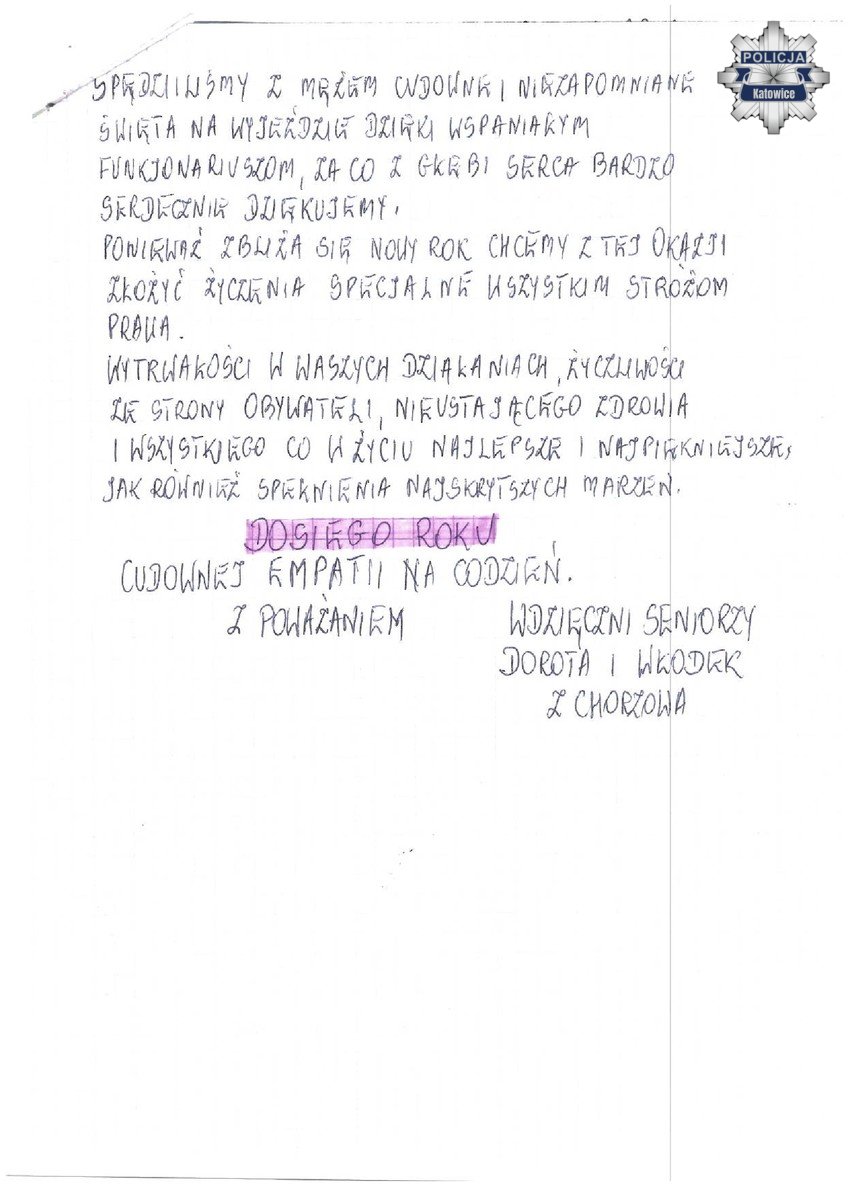 POLICJA
Katowice
SPĘDZILIŚMY Z MĘŻEM CUDOWNE I NIEZAPOMNIANE
ŚWIĘTA NA WYJEŹDZIE DZIĘKI WSPANIAŁYM
FUNKJONARIUSZOM, ZA CO Z GŁĘBI SERCA BARDZO
SERDECZNIE DZIĘKUJEMY.
PONIEWAŻ ZBLIŻA SIĘ NOWY ROK CHCEMY Z TEJ OKAZJI
ZŁOŻYĆ ŻYCZENIA SPECJALNE WSZYSTKIM STRÓŻOM
PRAWA.
WYTRWAŁOŚCI W WASZYCH DZIAŁANIACH, ŻYCZLIWOŚCI
ZE STRONY OBYWATELI, NIEUSTAJĄCEGO ZDROWIA
I WSZYSTKIEGO CO W ŻYCIU NAJLEPSZE I NAJPIĘKNIEJSZE,
JAK RÓWNIEŻ SPEŁNIENIA NAJSKRYTSZYCH MARZEŃ.
DOSIEGO ROKU
CUDOWNEJ EMPATII NA CODZIEŃ.
Z POWAŻANIEM WDZIĘCZNI SENIORZY
DOROTA I WŁODEK
Z CHORZOWA